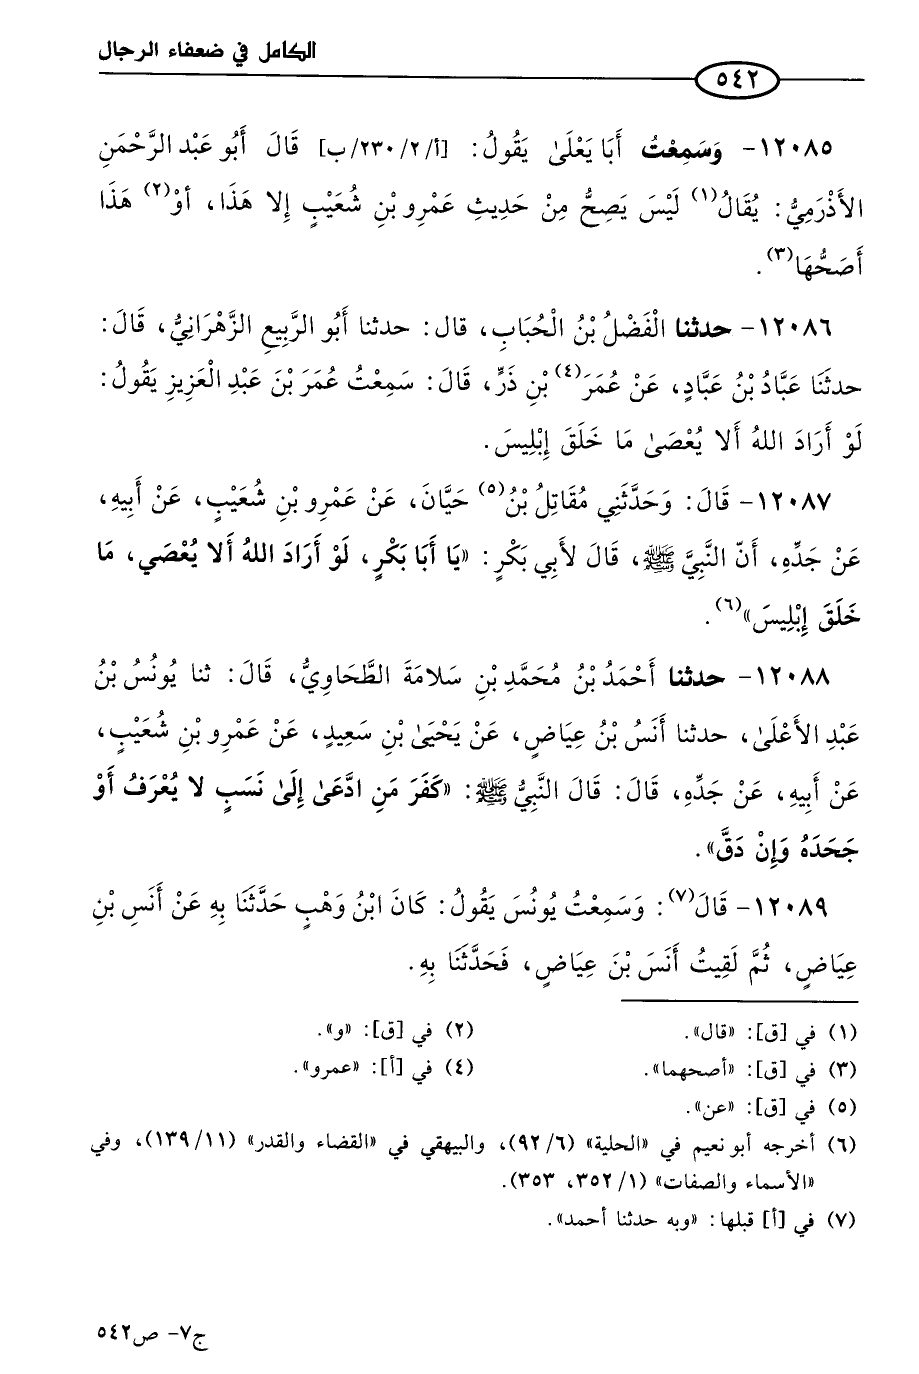 الكامل في ضعفاء الرجال
٥٤٢
١٢٠٨٥- وَسَمِعْتُ أَبَا يَعْلَىٰ يَقُولُ: [أ/٢/٢٣٠/ب] قَالَ أَبُو عَبْد الرَّحْمَنِ
الأَذْرَمِيُّ: يُقَالُ(١) لَيْسَ يَصِحُّ مِنْ حَدِيثِ عَمْرِو بْنِ شُعَيْبٍ إِلا هَذَا، أوْ(٢) هَذَا
أَصَحُّهَا(٣).
١٢٠٨٦- حدثنا الْفَضْلُ بْنُ الْحُبَابِ، قال: حدثنا أَبُو الرَّبِيعِ الزَّهْرَانِيُّ، قَالَ:
حدثَنَا عَبَّادُ بْنُ عَبَّادٍ، عَنْ عُمَرَ(٤) بْنِ ذَرٍّ، قَالَ: سَمِعْتُ عُمَرَ بْنَ عَبْدِ الْعَزِيزِ يَقُولُ:
لَوْ أَرَادَ اللهُ أَلا يُعْصَىٰ مَا خَلَقَ إِبْلِيسَ.
١٢٠٨٧- قَالَ: وَحَدَّثَنِي مُقَاتِلُ بْنُ(٥) حَيَّانَ، عَنْ عَمْرِو بْنِ شُعَيْبٍ، عَنْ أَبِيهِ،
عَنْ جَدِّهِ، أَنّ النَّبِيَّ ﷺ، قَالَ لأَبِي بَكْرٍ: «يَا أَبَا بَكْرٍ، لَوْ أَرَادَ اللهُ أَلا يُعْصَي، مَا
خَلَقَ إِبْلِيسَ»(٦).
١٢٠٨٨- حدثنا أَحْمَدُ بْنُ مُحَمَّدِ بْنِ سَلامَةَ الطَّحَاوِيُّ، قَالَ: ثنا يُونُسُ بْنُ
عَبْدِ الأَعْلَىٰ، حدثنا أَنَسُ بْنُ عِيَاضٍ، عَنْ يَحْيَىٰ بْنِ سَعِيدٍ، عَنْ عَمْرِو بْنِ شُعَيْبٍ،
عَنْ أَبِيهِ، عَنْ جَدِّهِ، قَالَ: قَالَ النَّبِيُّ ﷺ: «كَفَرَ مَنِ ادَّعَىٰ إِلَىٰ نَسَبٍ لا يُعْرَفُ أَوْ
جَحَدَهُ وَإِنْ دَقَّ».
١٢٠٨٩- قَالَ(٧): وَسَمِعْتُ يُونُسَ يَقُولُ: كَانَ ابْنُ وَهْبٍ حَدَّثَنَا بِهِ عَنْ أَنَسِ بْنِ
عِيَاضٍ، ثُمَّ لَقِيتُ أَنَسَ بْنَ عِيَاضٍ، فَحَدَّثَنَا بِهِ.
(١) في [ق]: «قال». (٢) في [ق]: «و».
(٣) في [ق]: «أصحهما». (٤) في [أ]: «عمرو».
(٥) في [ق]: «عن».
(٦) أخرجه أبو نعيم في «الحلية» (٩٢/٦)، والبيهقي في «القضاء والقدر» (١٣٩/١١)، وفي
«الأسماء والصفات» (٣٥٢/١، ٣٥٣).
(٧) في [أ] قبلها: «وبه حدثنا أحمد».
ج٧- ص٥٤٢